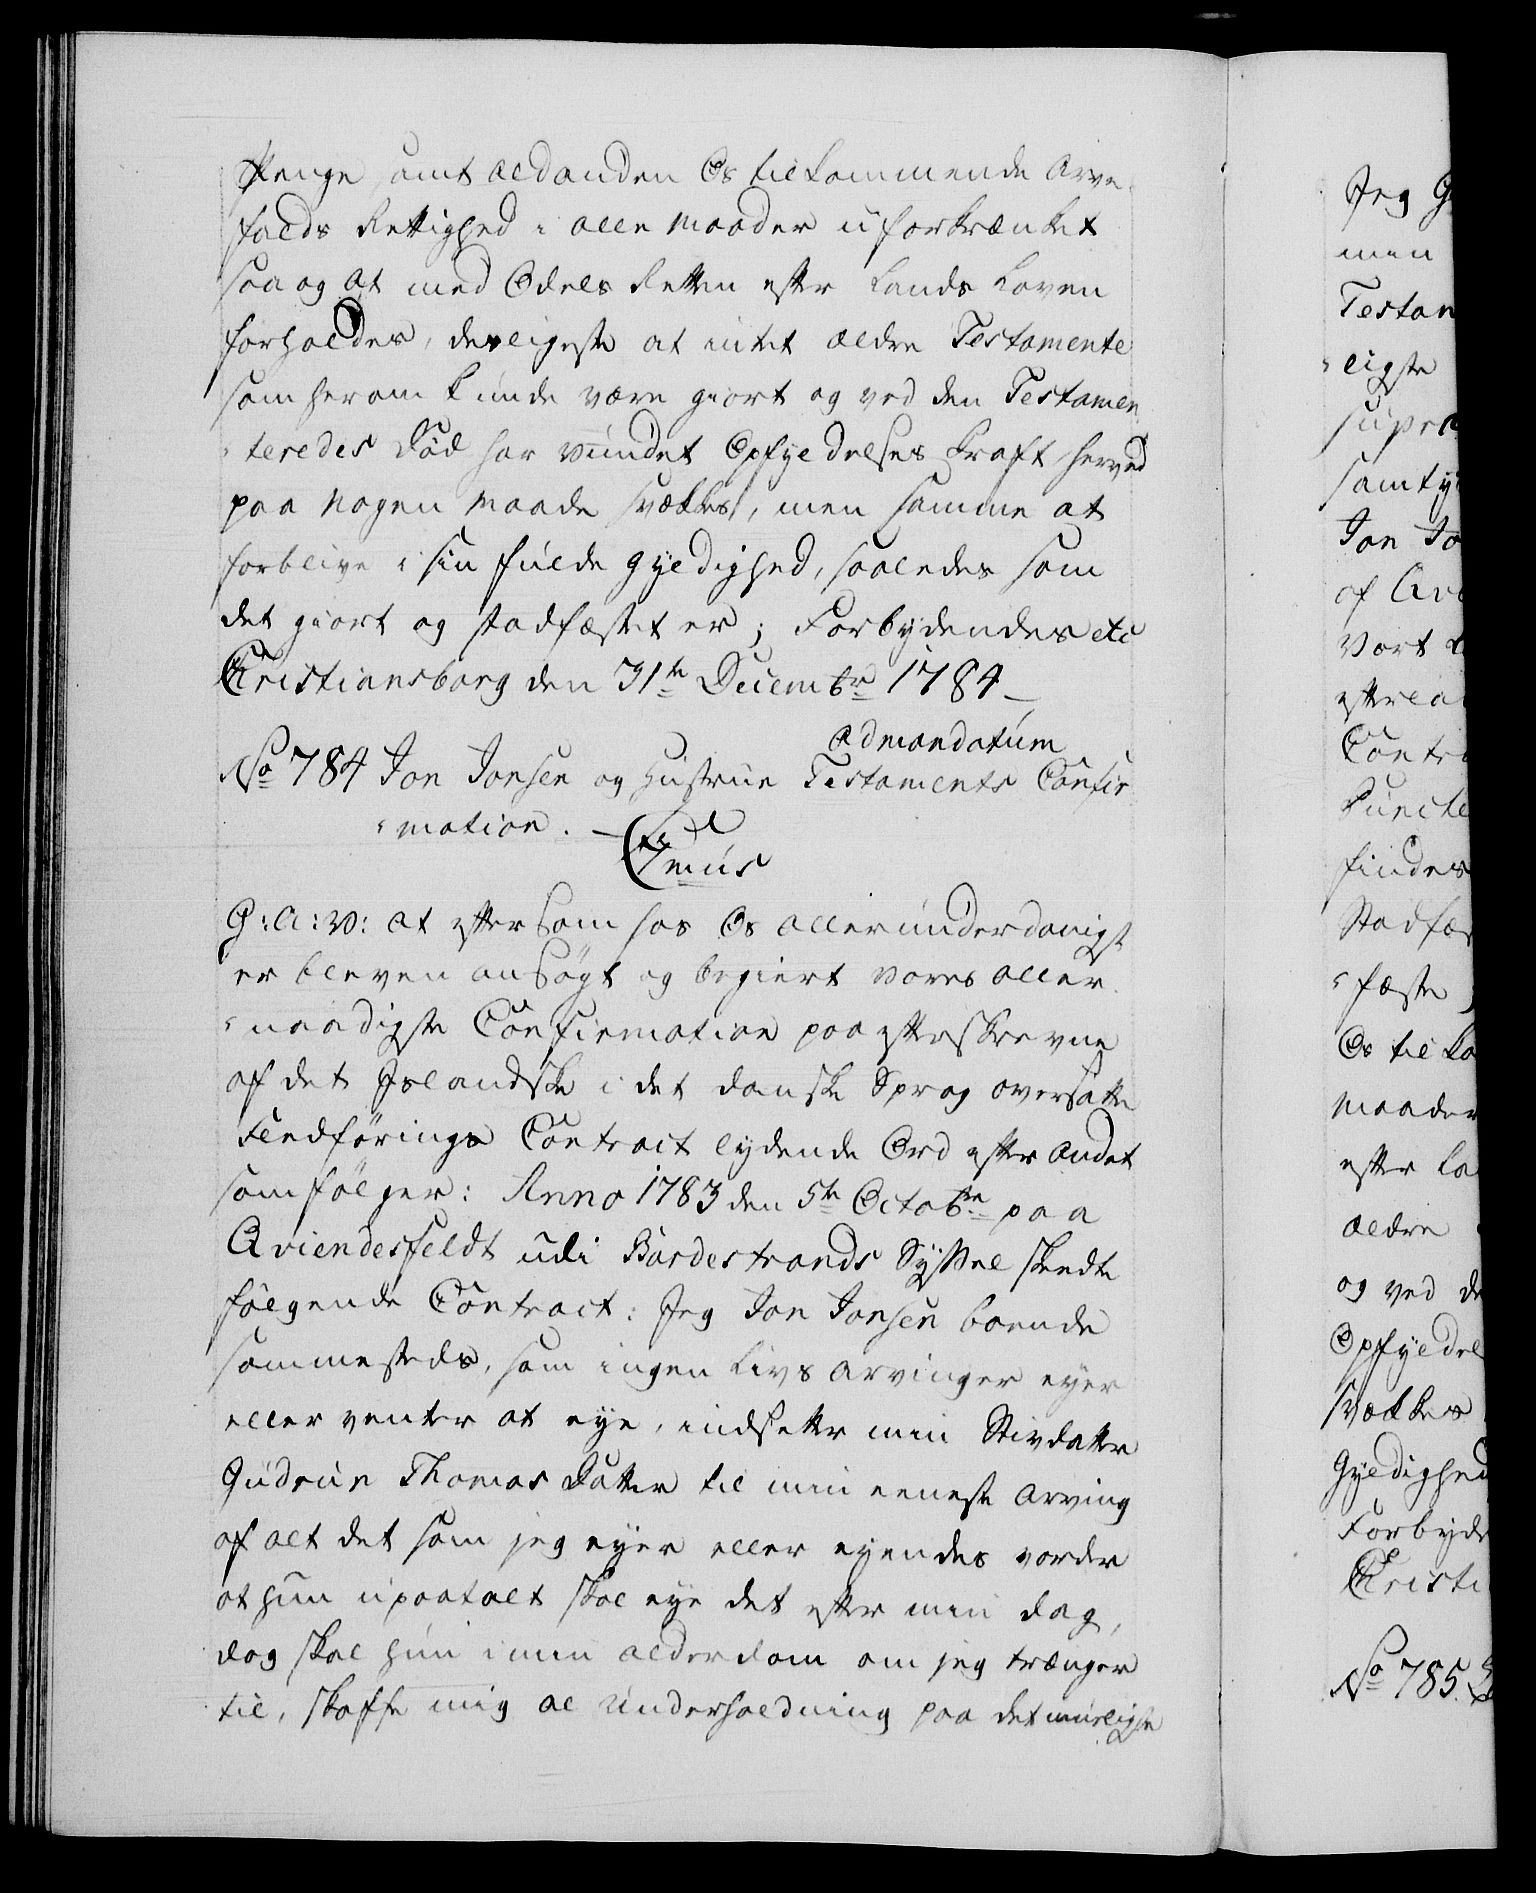 Penge, samt al anden Os tilkommende Arve
falds Rettighed i alle Maader uforkrænket
saa og at med Odels Retten efter Lands Loven
forholdes, desligeste at intet ældre Testamente
som herom kunde være giort og ved den Testamen
teredes Död har vundet Opfyldelses Kraft herved
paa nogen Maade svækkes, men samme at
forblive i sin fulde Gyldighed, saaledes som
det giort og stadfæstet er; Forbydendes etc
Christiansborg den 31te Decembr 1784 —
Ad mandatum
No 784 Jon Jonsen og Hustrue Testaments Confir
mation. —
C 7mus
G: A: V: at eftersom hos Os allerunderdanigst
er bleven ansögt og begiert vores aller
naadigste Confirmation paa efterskrevne
af det Islandske i det danske Sprog oversatte
Fledförings Contract lydende Ord efter andet
som fölger: Anno 1783 den 5te Octobr paa
Qviendesfeldt udi Bardestrands Syssel skedte
fölgende Contract: Jeg Jon Jonsen boende
sammesteds, som ingen Livs Arvinger eyer
eller venter at eye, indsetter min Stivdatter
Gudrun Thomas Datter til min eeneste Arving
af alt det som jeg eyer eller eyendes vorder
at hun upaatalt skal eye det efter min dag,
dog skal hun i min Alderdom om jeg trænger
til, skaffe mig al Underholdning paa det muligste
Jeg
men
Testam
ligste
supra
samty
Jon Jo
af
Vort
Contra
Puncte
findes
Stadfæs
fæste
Os tilko
Maader
efter La
ældre
og ved de
Opfyldel
svækkes
Gyldighed
Forbyde
Christi
No 785.